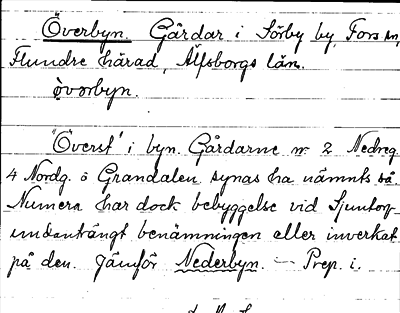 Överbyn. Gårdar i Sörby by, Fors sn,
Flundre härad, Älfsborgs län.
òvorbyn.
"Överst" i byn. Gårdarne nr 2 Nedreg.
4 Nordg. o Grandalen synas ha nämnts så.
Numera har dock bebyggelse vid Sjuntorp
undanträngt benämningen eller inverkat
på den. Jämför Nederbyn. — Prep. i.